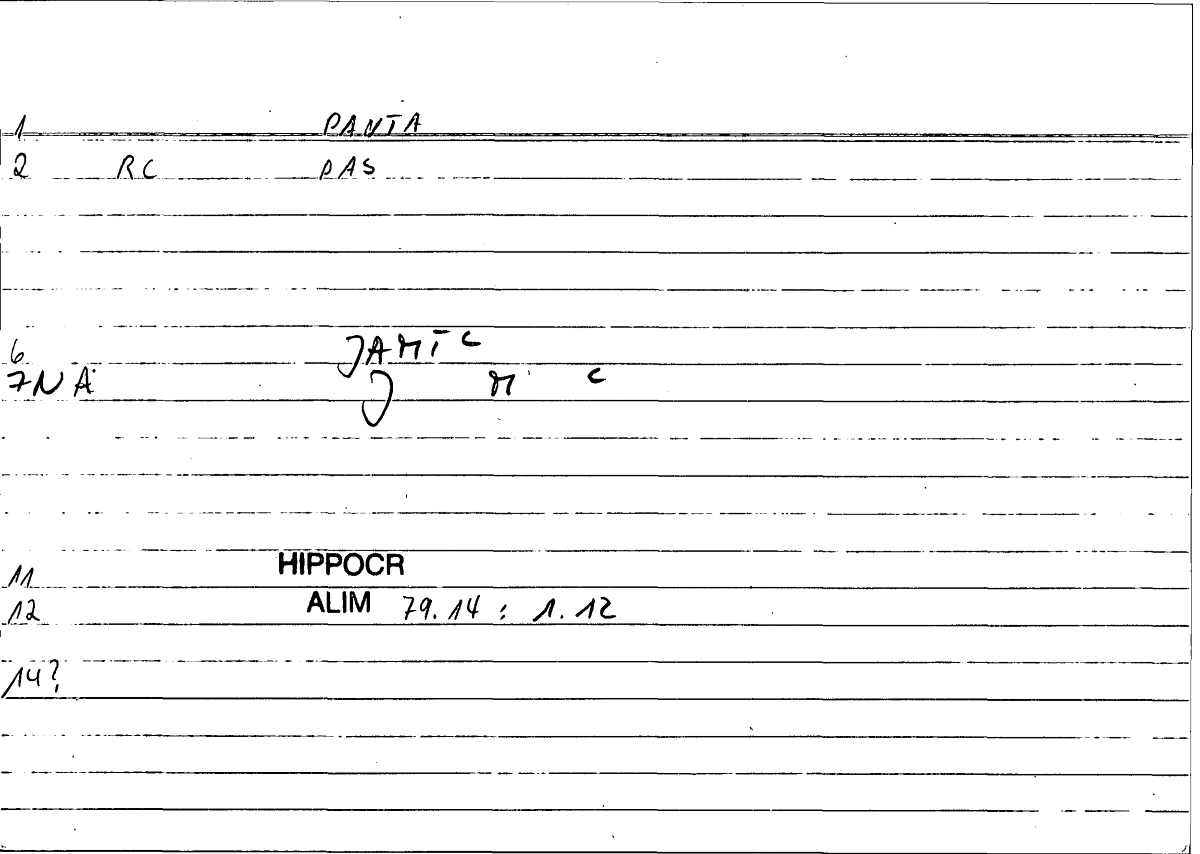 1 PANTA
2 RC PAS
6 JAMT C
7 N A J M C
11 HIPPOCR
12 ALIM 79.14 : 1.12
14?